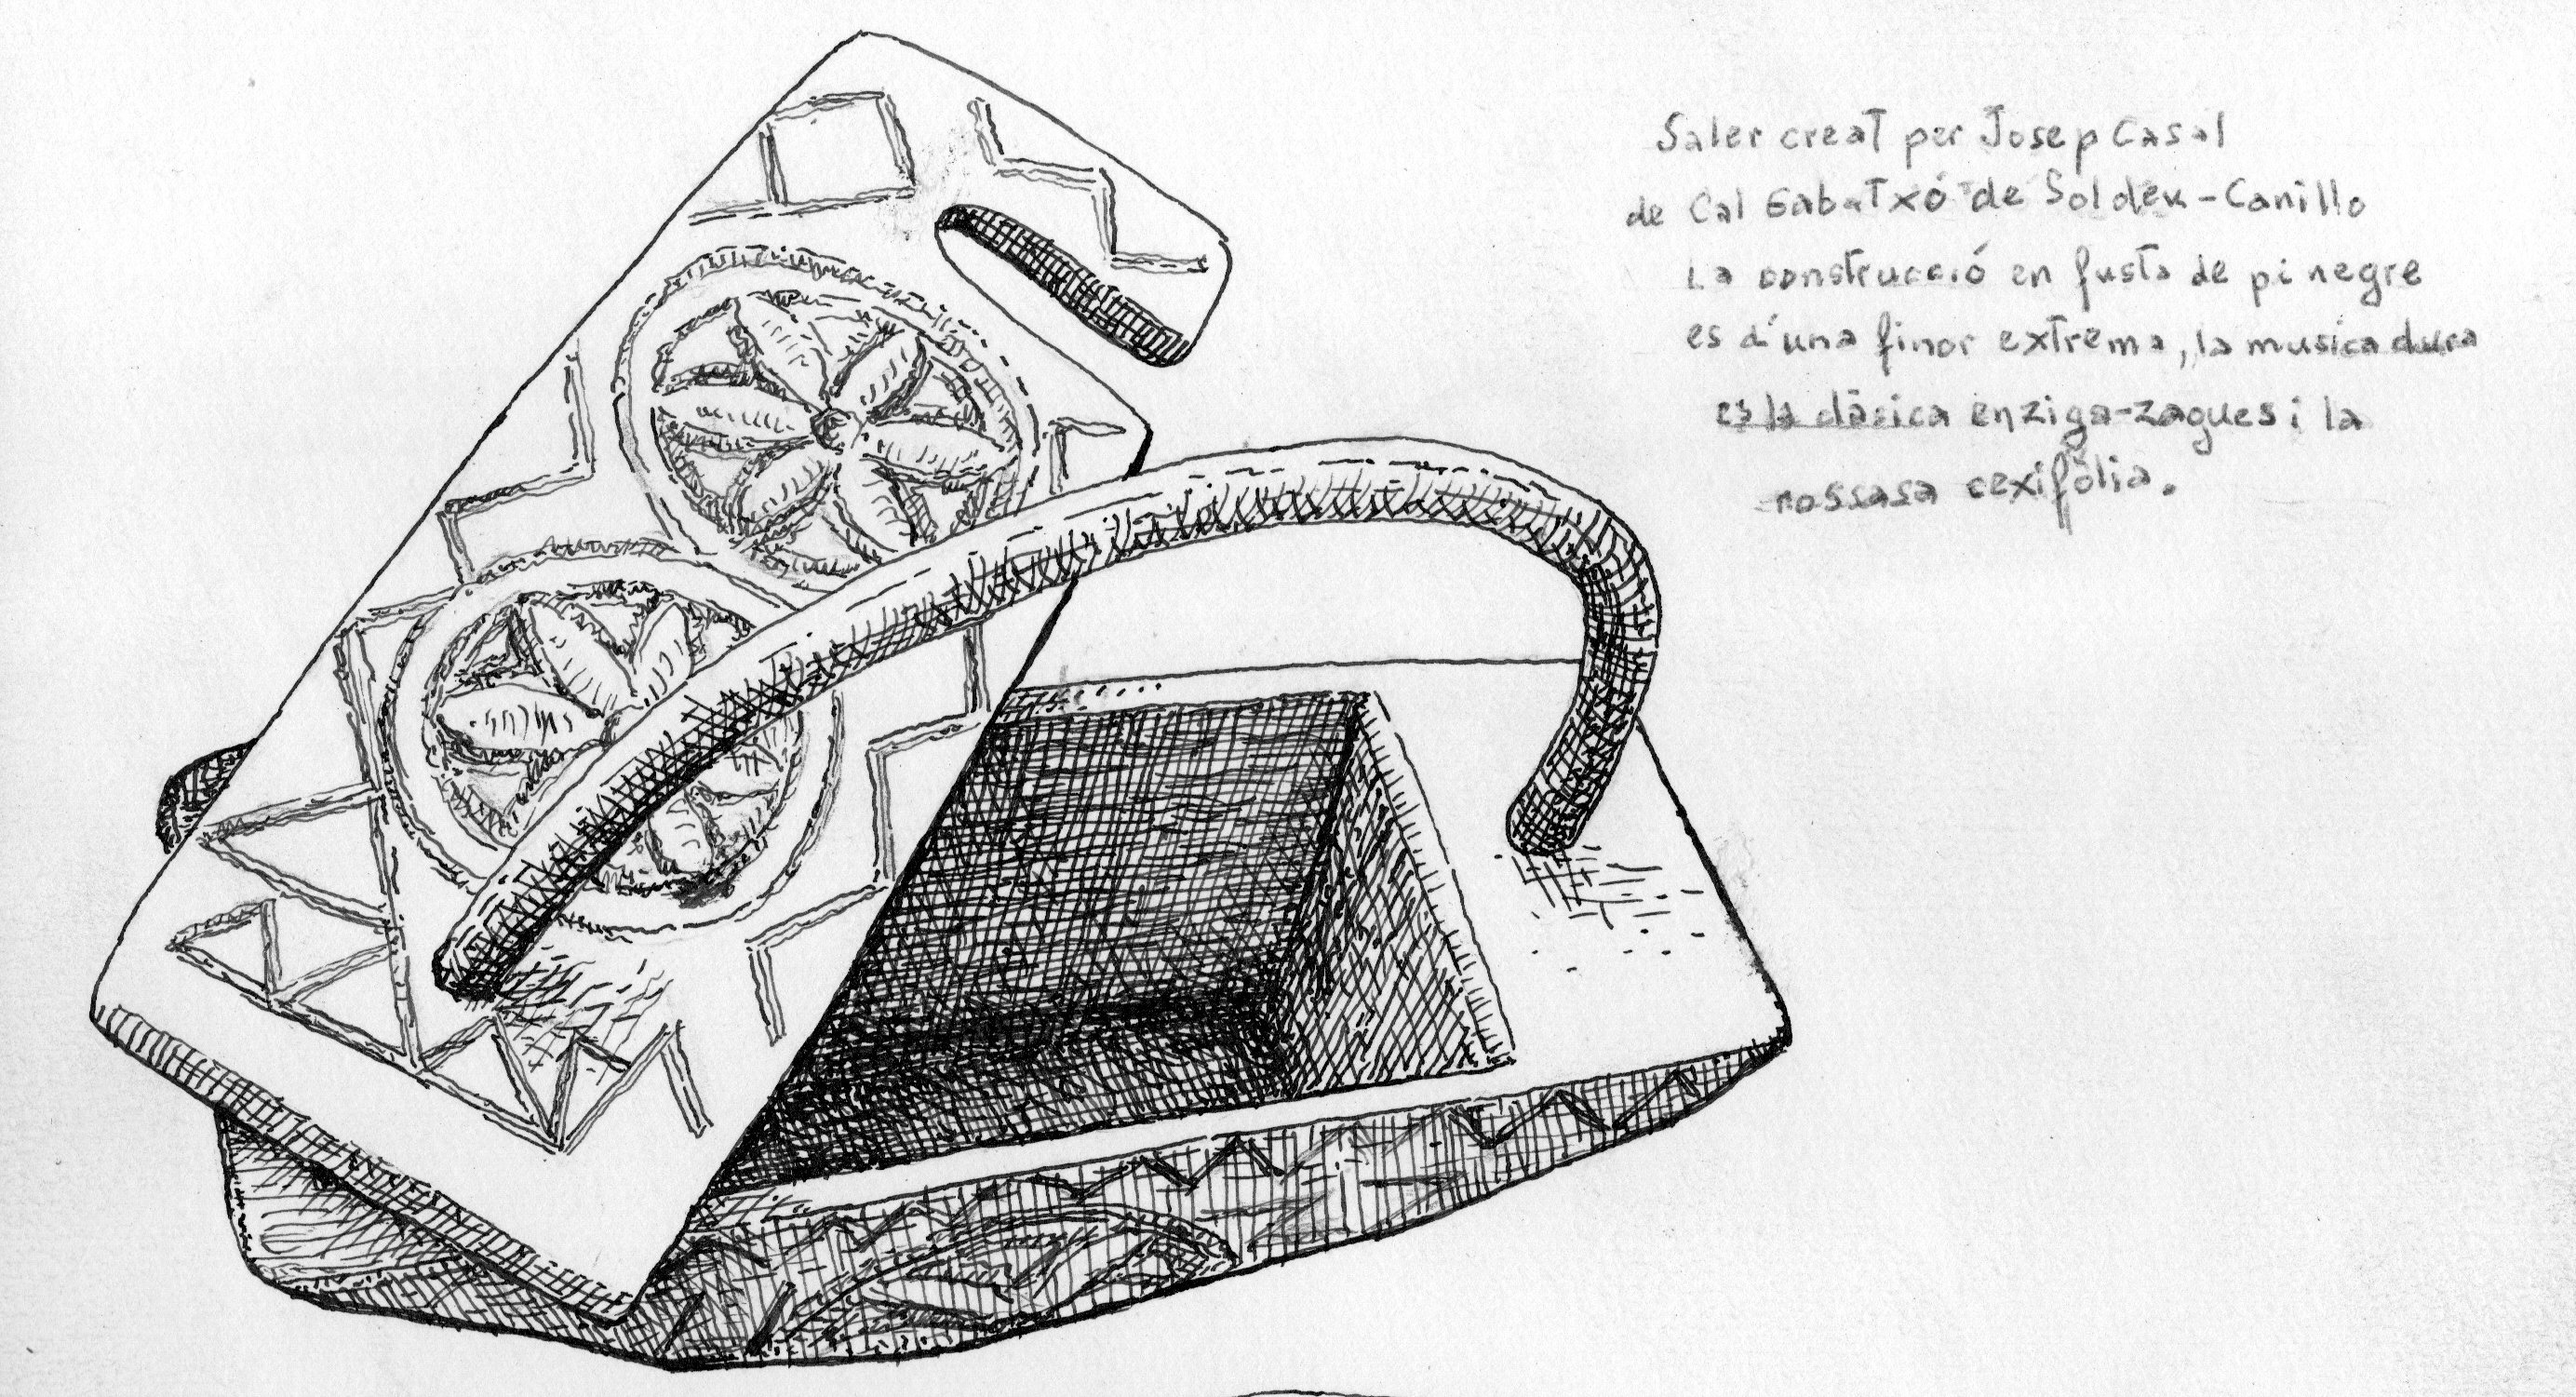 Saler creat per Josep Casal
de Cal Gabatxó de Soldeu-Canillo
La construcció en fusta de pi negre
es d'una finor extrema, la musicadura
es la clàsica enziga-zagues i la
rossasa sexifòlia.